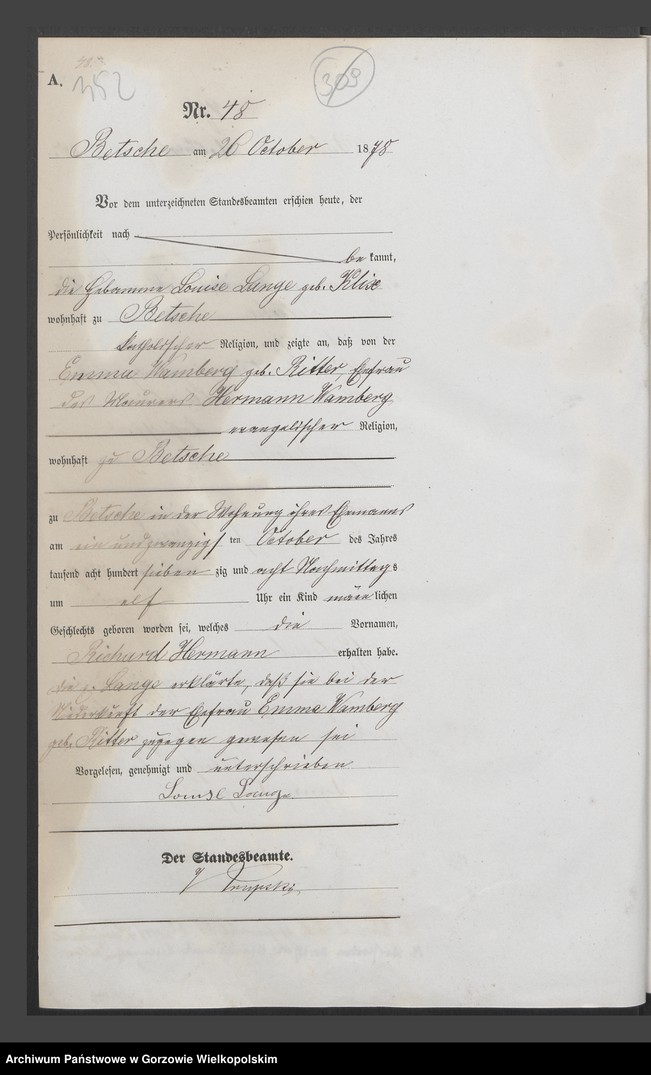 A.
352
309
Nr. 48
Betsche am 26 October 1878
Vor dem unterzeichneten Standesbeamten erschien heute, der
Persönlichkeit nach
be kannt,
die Hebamme Louise Lange geb. Klix
wohnhaft zu Betsche
katholischer Religion, und zeigte an, daß von der
Emma Wamberg geb. Ritter, Ehefrau
des Maurers Hermann Wamberg
evangelischer Religion,
wohnhaft zu Betsche
zu Betsche in der Wohnung ihres Ehemanns
am ein und zwanzigs ten October des Jahres
tausend acht hundert sieben zig und acht Nachmittags
um elf Uhr ein Kind männlichen
Geschlechts geboren worden sei, welches die Vornamen,
Richard Hermann erhalten habe.
die p. Lange erklärte, daß sie bei der
Niederkunft der Ehefrau Emma Wamberg
geb. Ritter zugegen gewesen sei
Vorgelesen, genehmigt und unterschrieben
Louise Lange
Der Standesbeamte.
Archiwum Państwowe w Gorzowie Wielkopolskim